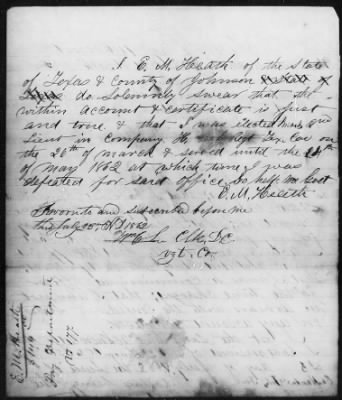 I E. M. Heath of the State
of Texas & County of Johnson
do Solemnly swear that the
within account & certificate is just
and true & that I was elected
Lieut in company H Regt Tex Cav on
the 20th of march & served until the 14th
of May 1862 at which time I was
defeated for said office So help me God
E. M. Heath
Sworn to and subscribed before me
this July 1862
Clk D C
Co.
E. M. Heath
Pay Department
No 177